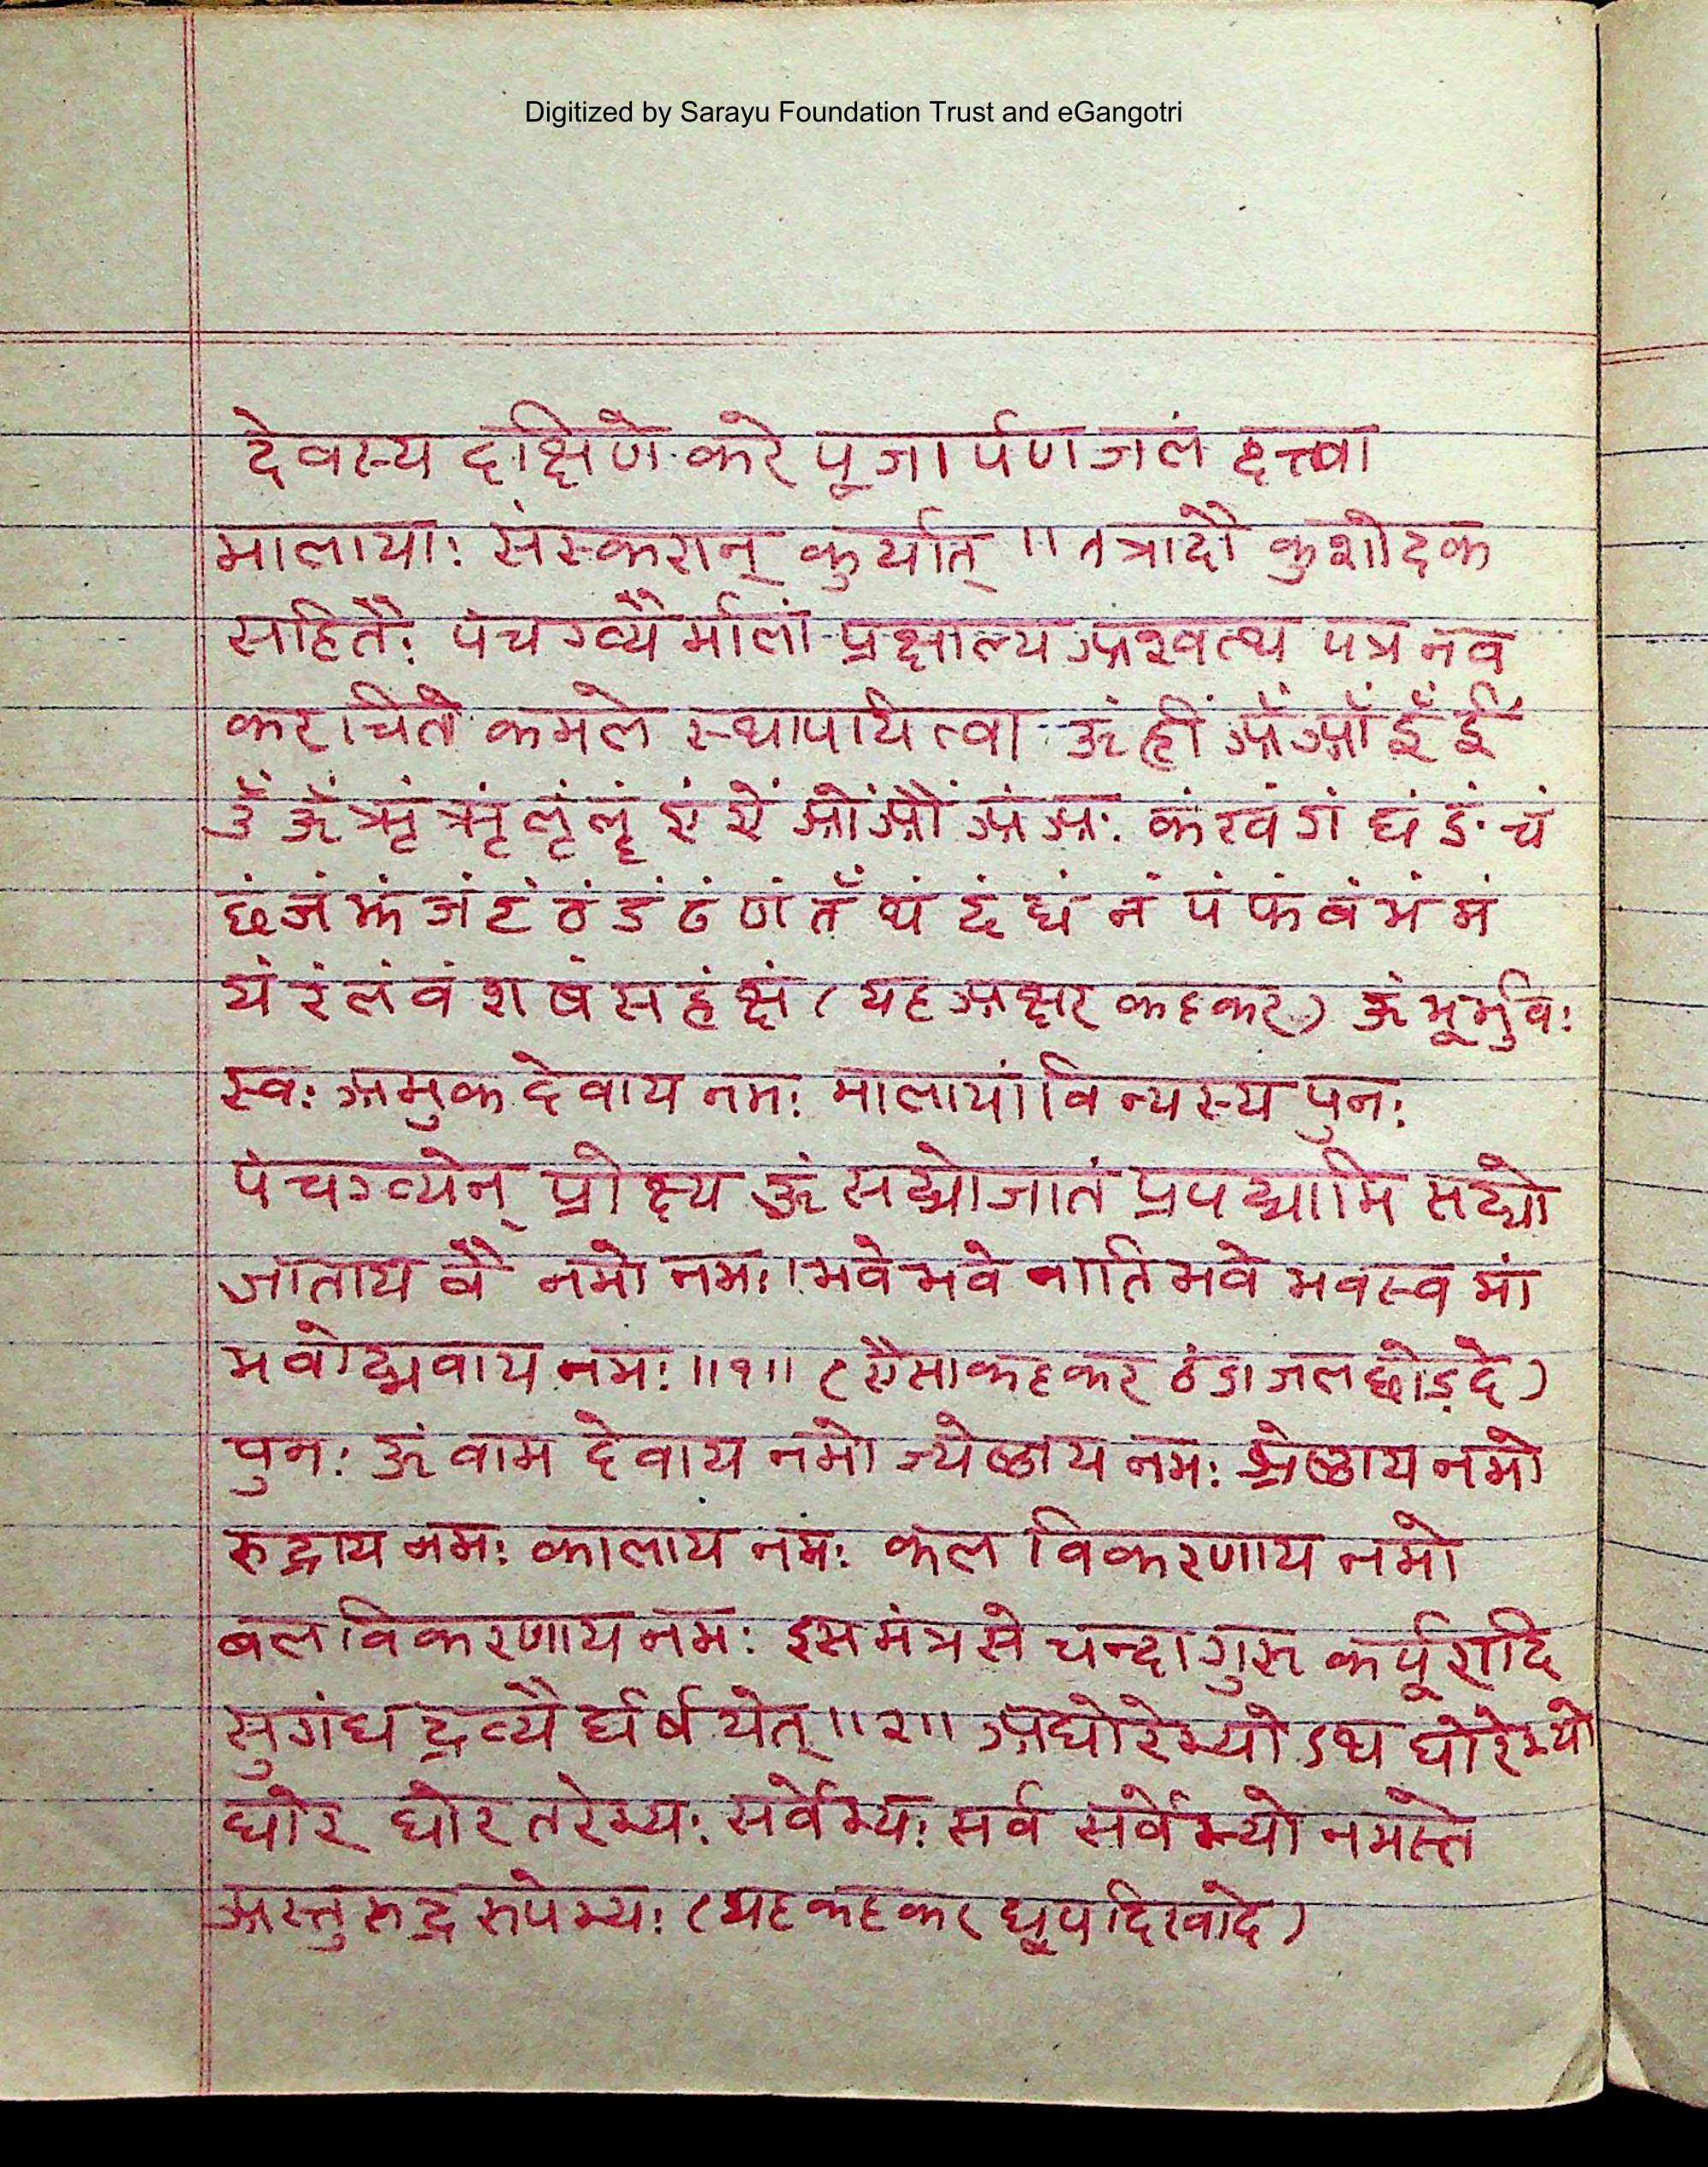 Digitized by Sarayu Foundation Trust and eGangotri
देवस्य दक्षिणे करे पूजार्पण जलं दत्त्वा
मालायाः संस्करान् कुर्यात् ॥ तत्रादौ कुशोदक
सहितैः पंचगव्यै र्मालां प्रक्षाल्य अश्वत्थ पत्र नव
करचिते कमले स्थापयित्वा ॐ ह्रीं अँ आँ इँ ईं
उँ ऊँ ऋं ॠं लृं लॄं एं ऐं ओं औं अं अः कं खं गं घं ङं चं
छं जं झं ञं टं ठं डं ढं णं तँ थं दं धं नं पं फं बं भं मं
यं रं लं वं श षं स हं क्षं (यह अक्षर कहकर) ॐ भूर्भुवः
स्वः अमुक देवाय नमः मालायां विन्यस्य पुनः
पंचगव्येन् प्रोक्ष्य ॐ सद्योजातं प्रपद्यामि सद्यो
जाताय वै नमो नमः। भवे भवे नाति भवे भवस्व मां
भवोद्भवाय नमः ॥१॥ (ऐसा कहकर ठंडा जल छोड़ दे)
पुनः ॐ वाम देवाय नमो ज्येष्ठाय नमः श्रेष्ठाय नमो
रुद्राय नमः कालाय नमः कल विकरणाय नमो
बल विकरणाय नमः इस मंत्र से चन्दागुरु कर्पूरादि
सुगंध द्रव्यै र्घर्षयेत् ॥२॥ अघोरेभ्योऽथ घोरेभ्यो
घोर घोर तरेभ्यः सर्वेभ्यः सर्व सर्वेभ्यो नमस्ते
अस्तु रुद्र रुपेभ्यः (यह कहकर धूपादि खादे)